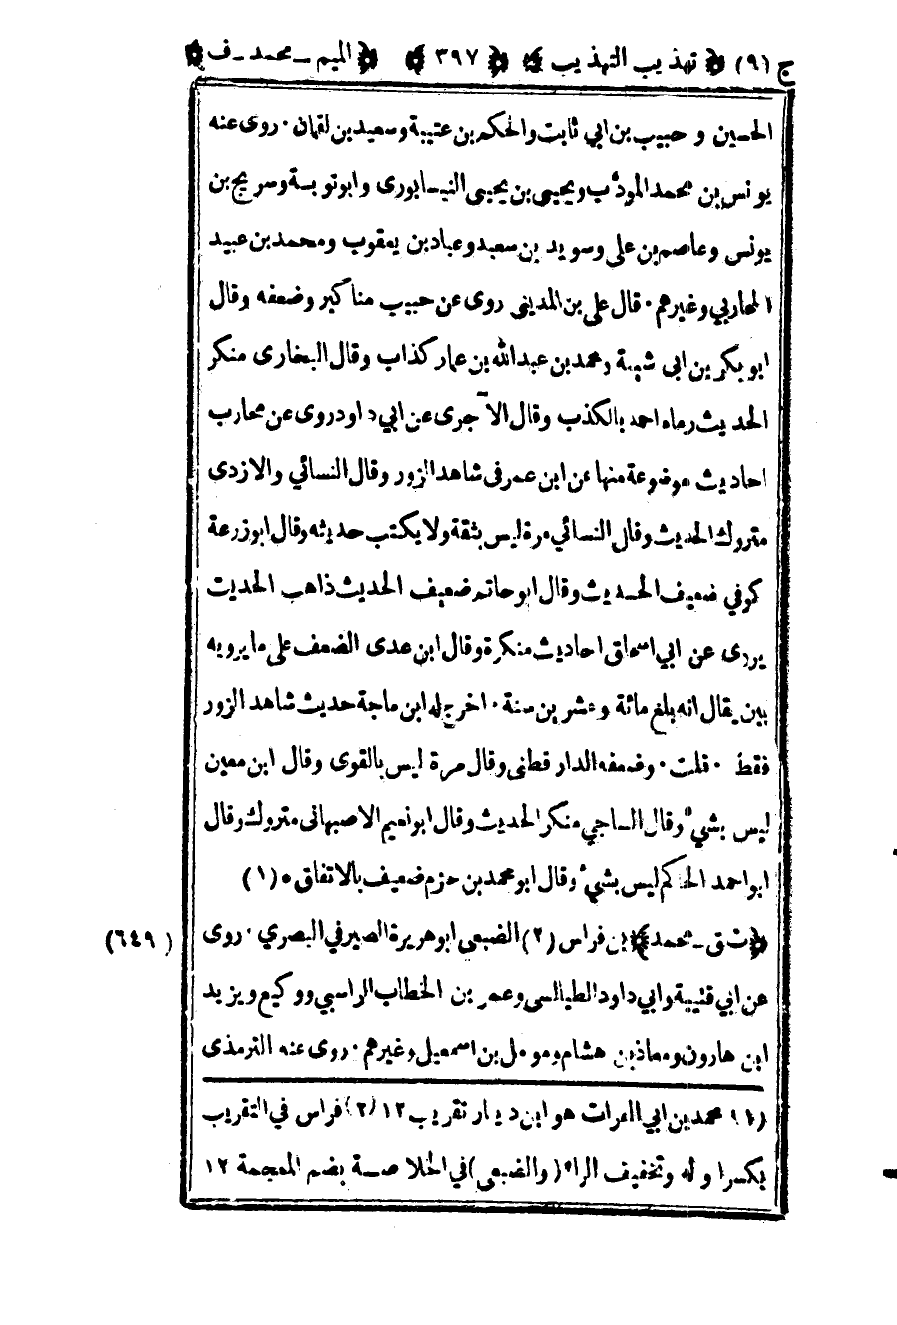 ج (٩) ﴿ تهذيب التهذيب ﴾ ﴿ ٣٩٧ ﴾ ﴿ الميم ـ محمد ـ ف ﴾
الحسين و حبيب بن ابي ثابت والحكم بن عتيبة وسعيد بن لقمان ٠ روى عنه
يونس بن محمد المودب ويحيى بن يحيى النيسابورى وابو توبة وسريج بن
يونس وعاصم بن على وسويد بن سعيد وعباد بن يعقوب ومحمد بن عبيد
المحاربي وغيرهم ٠ قال على بن المديني روى عن حبيب مناكير وضعفه وقال
ابو بكر بن ابى شيبة ومحمد بن عبد الله بن عمار كذاب وقال البخارى منكر
الحديث رماه احمد بالكذب وقال الآجرى عن ابي داود روى عن محارب
احاديث موضوعة منها عن ابن عمر فى شاهد الزور وقال النسائي والازدى
متروك الحديث وقال النسائي مرة ليس بثقة ولا يكتب حديثه وقال ابو زرعة
كوفي ضعيف الحديث وقال ابو حاتم ضعيف الحديث ذاهب الحديث
يروى عن ابي اسحاق احاديث منكرة وقال ابن عدى الضعف على ما يرويه
بين يقال انه بلغ مائة وعشرين سنة ٠ اخرج له ابن ماجة حديث شاهد الزور
فقط ٠ قلت ٠ وضعفه الدار قطنى وقال مرة ليس بالقوى وقال ابن معين
ليس بشيء وقال الساجي منكر الحديث وقال ابو نعيم الاصبهانى متروك وقال
ابو احمد الحاكم ليس بشيء وقال ابو محمد بن حزم ضعيف بالاتفاق ٠ (١)
﴿ ت ق ـ محمد ﴾ بن فراس (٢) الضبعى ابو هريرة الصير في البصري ٠ روى (٦٤٩)
عن ابي قتيبة وابي داود الطيالسى وعمر بن الخطاب الراسبي ووكيع ويزيد
ابن هارون ومعاذ بن هشام ومومل بن اسمعيل وغيرهم ٠ روى عنه الترمذى
(١) محمد بن ابي الفرات هو ابن دينار تقريب ١٢ (٢) فراس في التقريب
بكسر اوله وتخفيف الراء (والضبعى) في الخلاصة بضم المعجمة ١٢